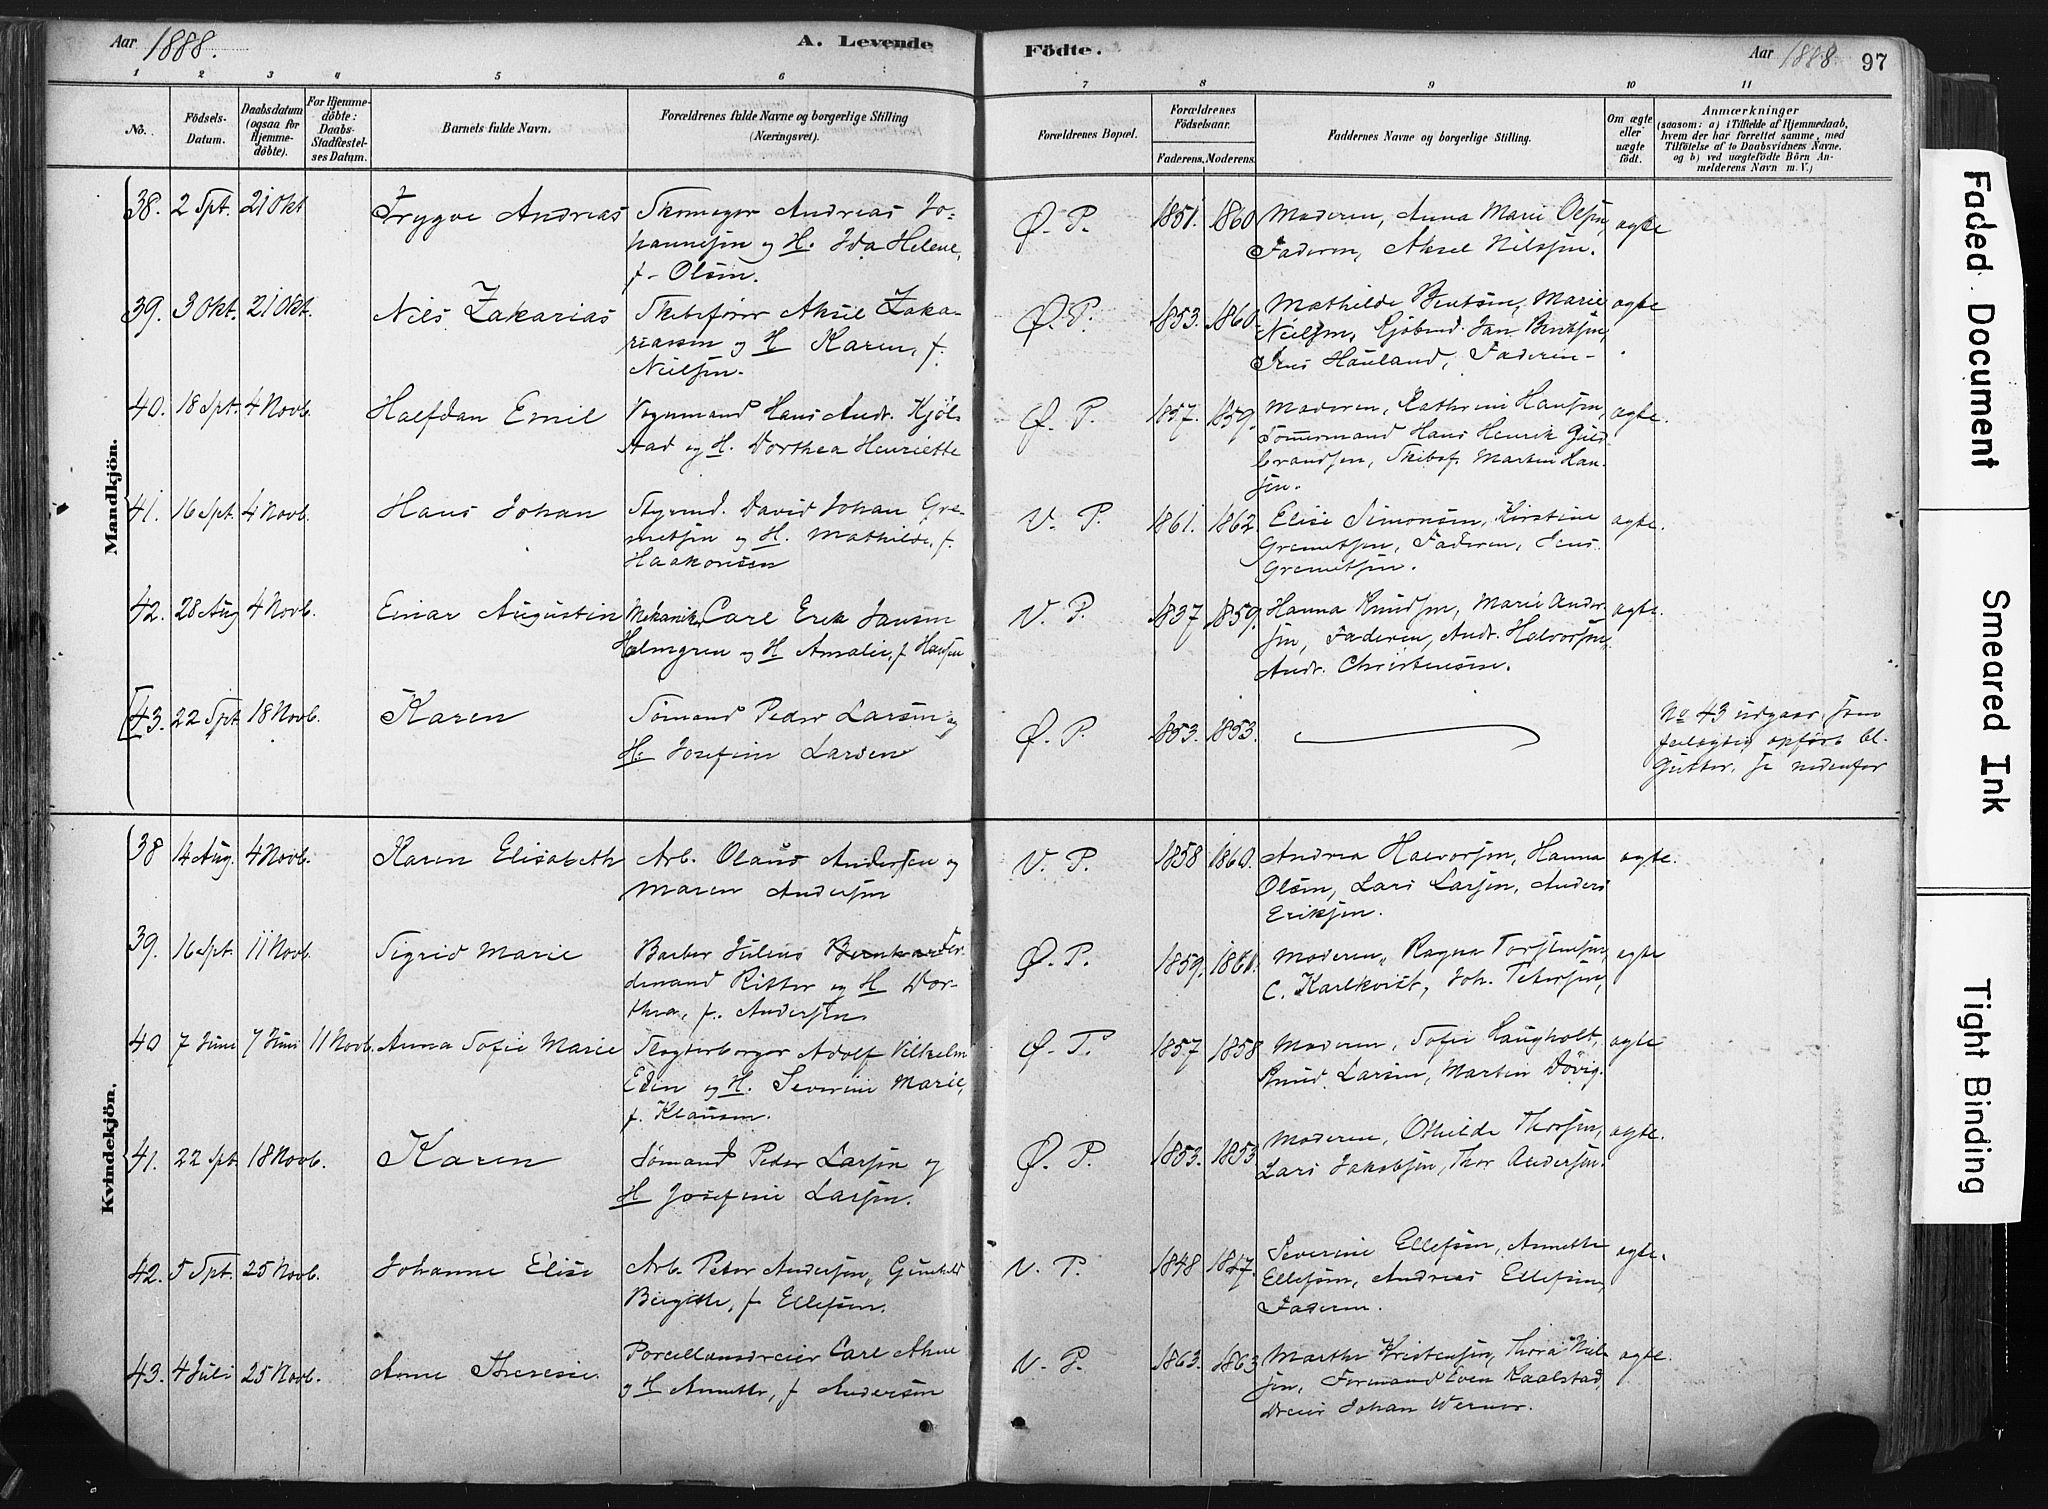 Aar 1888.
A. Levende Födte.
Aar 1888. 97
1 2 3 4 5 6 7 8 9 10 11
No.
Födsels-Datum.
Daabsdatum (ogsaa for Hjemmedöbte).
For Hjemmedöbte: Daabs-Stadfæstelses Datum.
Barnets fulde Navn.
Forældrenes fulde Navne og borgerlige Stilling (Næringsvei).
Forældrenes Bopæl.
Forældrenes Födselsaar.
Faderens. Moderens.
Faddernes Navne og borgerlige Stilling.
Om ægte eller uægte födt.
Anmærkninger (saasom: a) i Tilfælde af Hjemmedaab, hvem der har forrettet samme, med Tilföielse af to Daabsvidners Navne, og b) ved uægtefödte Börn Anmelderens Navn m. V.)
Mandkjön.
38. 2 Spt. 21 Okt Trygve Andreas Skomager Andreas Jo- Ø. P. 1851. 1860 Moderen, Anna Marie Olsen, ægte
hannesen og H. Ida Helene, Faderen, Aksel Nilssen.
f. Olsen.
39. 3 Okt. 21 Okt. Nils Zakarias Skibsfører Aksel Zaka- Ø. P. 1853. 1860. Mathilde Bentsen, Marie ægte
riassen og H Karen, f. Nielsen, Kjøbmd. Jan Bentsen,
Nielsen. Jens Hauland, Faderen
40. 18 Spt. 4 Novb. Halfdan Emil Vognmand Hans Andr. Kjöl- Ø. P. 1857. 1859. Moderen, Kathrine Hansen, ægte.
stad og H. Dorthea Henriette Tømmermand Hans Henrik Guld-
brandsen, Skibsf. Martin Han-
sen.
41. 16 Spt. 4 Novb. Hans Johan Styrmd. David Johan Gre- V. P. 1861. 1862. Elise Simonsen, Kirstine ægte.
metsen og H. Mathilde, f. Gremetsen, Faderen, Jens
Haakonsen Gremetsen.
42. 28 Aug 4 Novb. Einar Augustin Mekaniker Carl Erik Jansen V. P. 1837 1859. Hanna Knudsen, Marie Ander- ægte.
Holmgren og H Amalie, f. Hansen sen, Faderen, Andr. Halvorsen,
Andr. Christensen.
43. 22 Spt 18 Novb. Karen Sømand Peder Larsen og Ø. P. 1853. 1853. No 43 udgaar, som
H. Josefine Larsen feilagtig opført bl.
Gutter, se nedenfor
Kvindekjön.
38 14 Aug. 4 Novb. Karen Elisabeth Arb. Olaus Andersen og V. P. 1858 1860. Andrea Halvorsen, Hanna ægte.
Maren Andersen Olsen, Lars Larsen, Anders
Eriksen.
39. 16 Spt. 11 Novb. Sigrid Marie Barber Julius Bernhard Fer- Ø. P. 1859. 1861. Moderen, Ragna Torstensen, ægte
dinand Ritter og H Dor- C. Karlkvist, Joh. Petersen,
thea, f. Andersen
40 7 Juni 7 Juni 11 Novb. Anna Sofie Marie Slagterborger Adolf Vilhelm Ø. P. 1857 1858 Moderen, Sofie Haugholt, ægte
Edin og H. Severine Marie, Knud Larsen, Martin Døvig.
f. Klausen.
41. 22 Spt 18 Novb. Karen Sømand Peder Larsen og Ø. P. 1853. 1853 Moderen, Othilde Thorsen, ægte.
H Josefine Larsen. Lars Jakobsen, Thor Andersen.
42. 5 Spt. 25 Novb. Johanne Elise Arb. Peter Andersen, Gunhild V. P. 1848 1847. Severine Ellefsen, Annette ægte.
Birgitte, f. Ellefsen. Ellefsen, Andreas Ellefsen,
Faderen.
43. 4 Juli 25 Novb. Anne Theresie Porcellænsdreier Carl V. P. 1863. 1863 Marthe Kristensen, Thora Niel- ægte.
og H Annette, f. Andersen sen, Formand Even Kaalstad,
Dreier Johan Werner.
Faded Document
Smeared Ink
Tight Binding